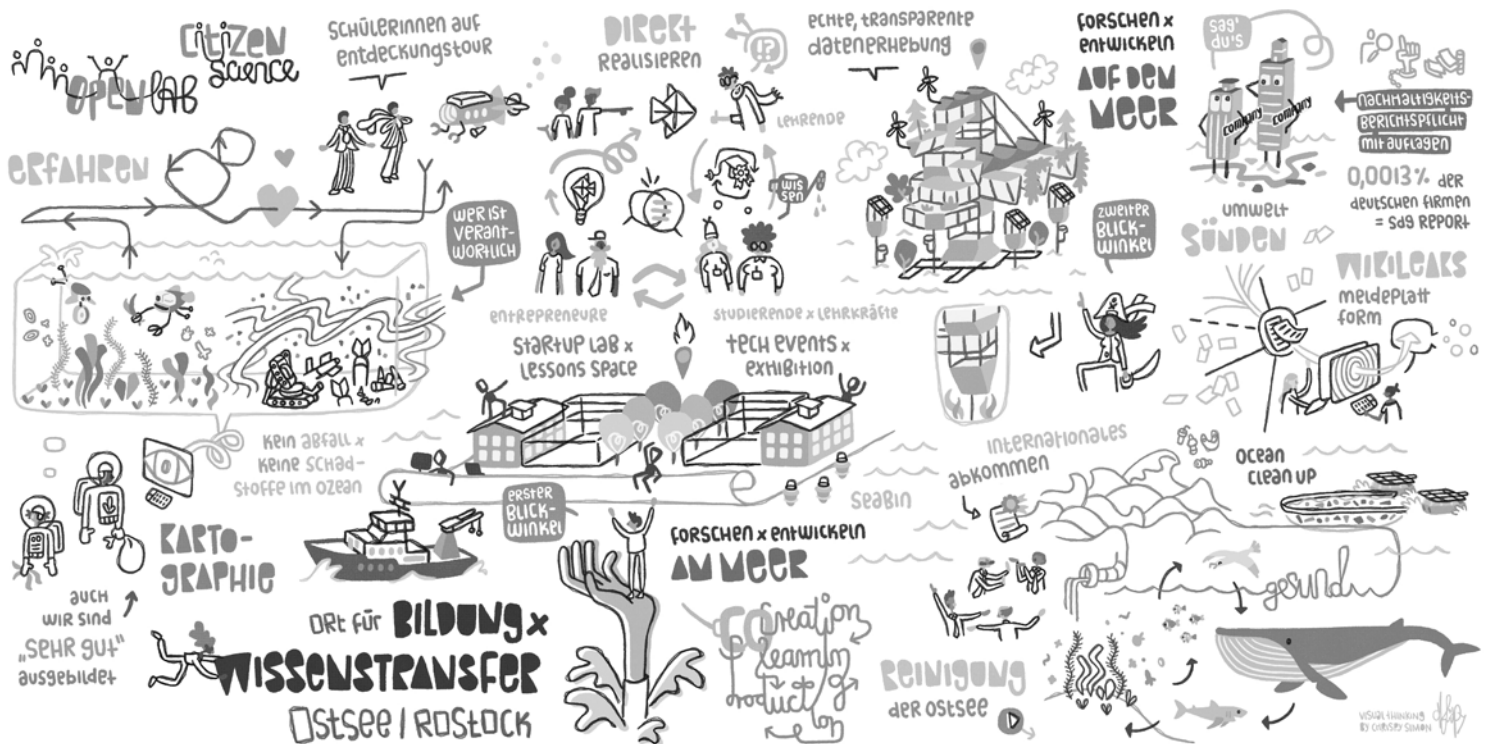 OPEN LAB
CitiZEN
Science
SCHÜLERINNEN AUF
ENTDECKUNGSTOUR
DIREKT
REALISIEREN
ECHTE, TRANSPARENTE
DATENERHEBUNG
FORSCHEN x
ENTWICKELN
AUF DEM
MEER
SAG'
DU'S
COMPANY
COMPANY
NACHHALTIGKEITS-
BERICHTSPFLICHT
MIT AUFLAGEN
0,0013% DER
DEUTSCHEN FIRMEN
= SDG REPORT
LEHRENDE
ERFAHREN
WER IST
VERANT-
WORTLICH
WIS
SEN
ZWEITER
BLICK-
WINKEL
UMWELT
SÜNDEN
WIKILEAKS
MELDEPLATT
FORM
ENTREPRENEURE
STUDIERENDE x LEHRKRÄFTE
STARTUP LAB x
LESSONS SPACE
TECH EVENTS x
EXHIBITION
KEIN ABFALL x
KEINE SCHAD-
STOFFE IM OZEAN
SEABIN
INTERNATIONALES
ABKOMMEN
OCEAN
CLEAN UP
ERSTER
BLICK-
WINKEL
KARTO-
GRAPHIE
FORSCHEN x ENTWICKELN
AM MEER
gesund
AUCH
WIR SIND
„SEHR GUT"
AUSGEBILDET
ORT FÜR BILDUNG x
WISSENSTRANSFER
OSTSEE | ROSTOCK
CO
Creation
Learning
Product
REINIGUNG
DER OSTSEE
VISUAL THINKING
BY CHRISPY SIMON